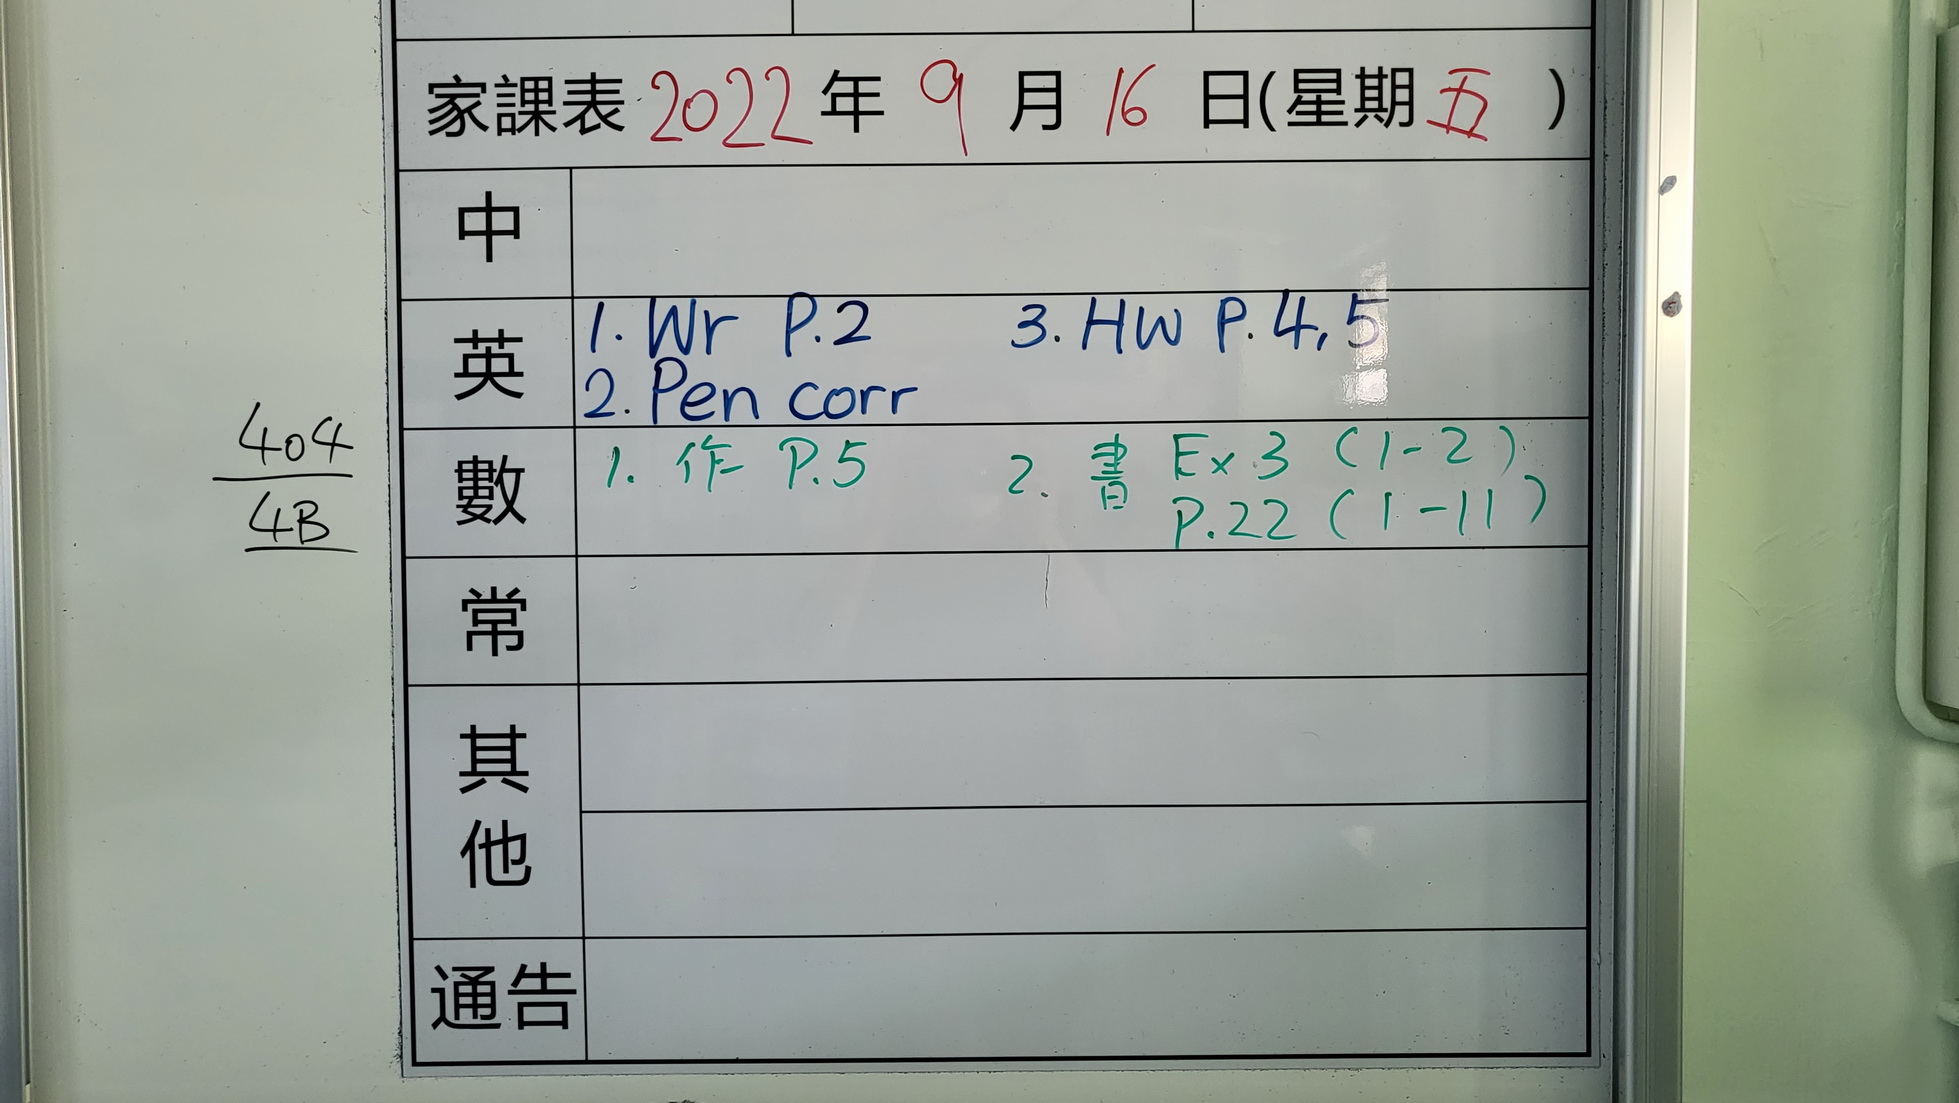 家課表 2022 年 9 月 16 日(星期 五 )
中
英
1. Wr P.2 3. HW P.4,5
2. Pen corr
404
4B
數
1. 作 P.5 2. 書 Ex 3 (1-2)
P.22 (1-11)
常
其他
通告